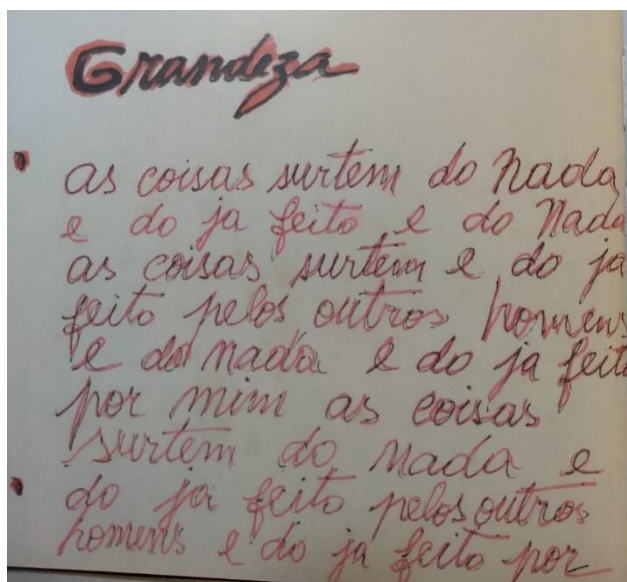 Grandeza
as coisas surtem do nada
e do ja feito e do nada
as coisas surtem e do ja
feito pelos outros homens
e do nada e do ja feito
por mim as coisas
surtem do nada e
do ja feito pelos outros
homens e do ja feito por